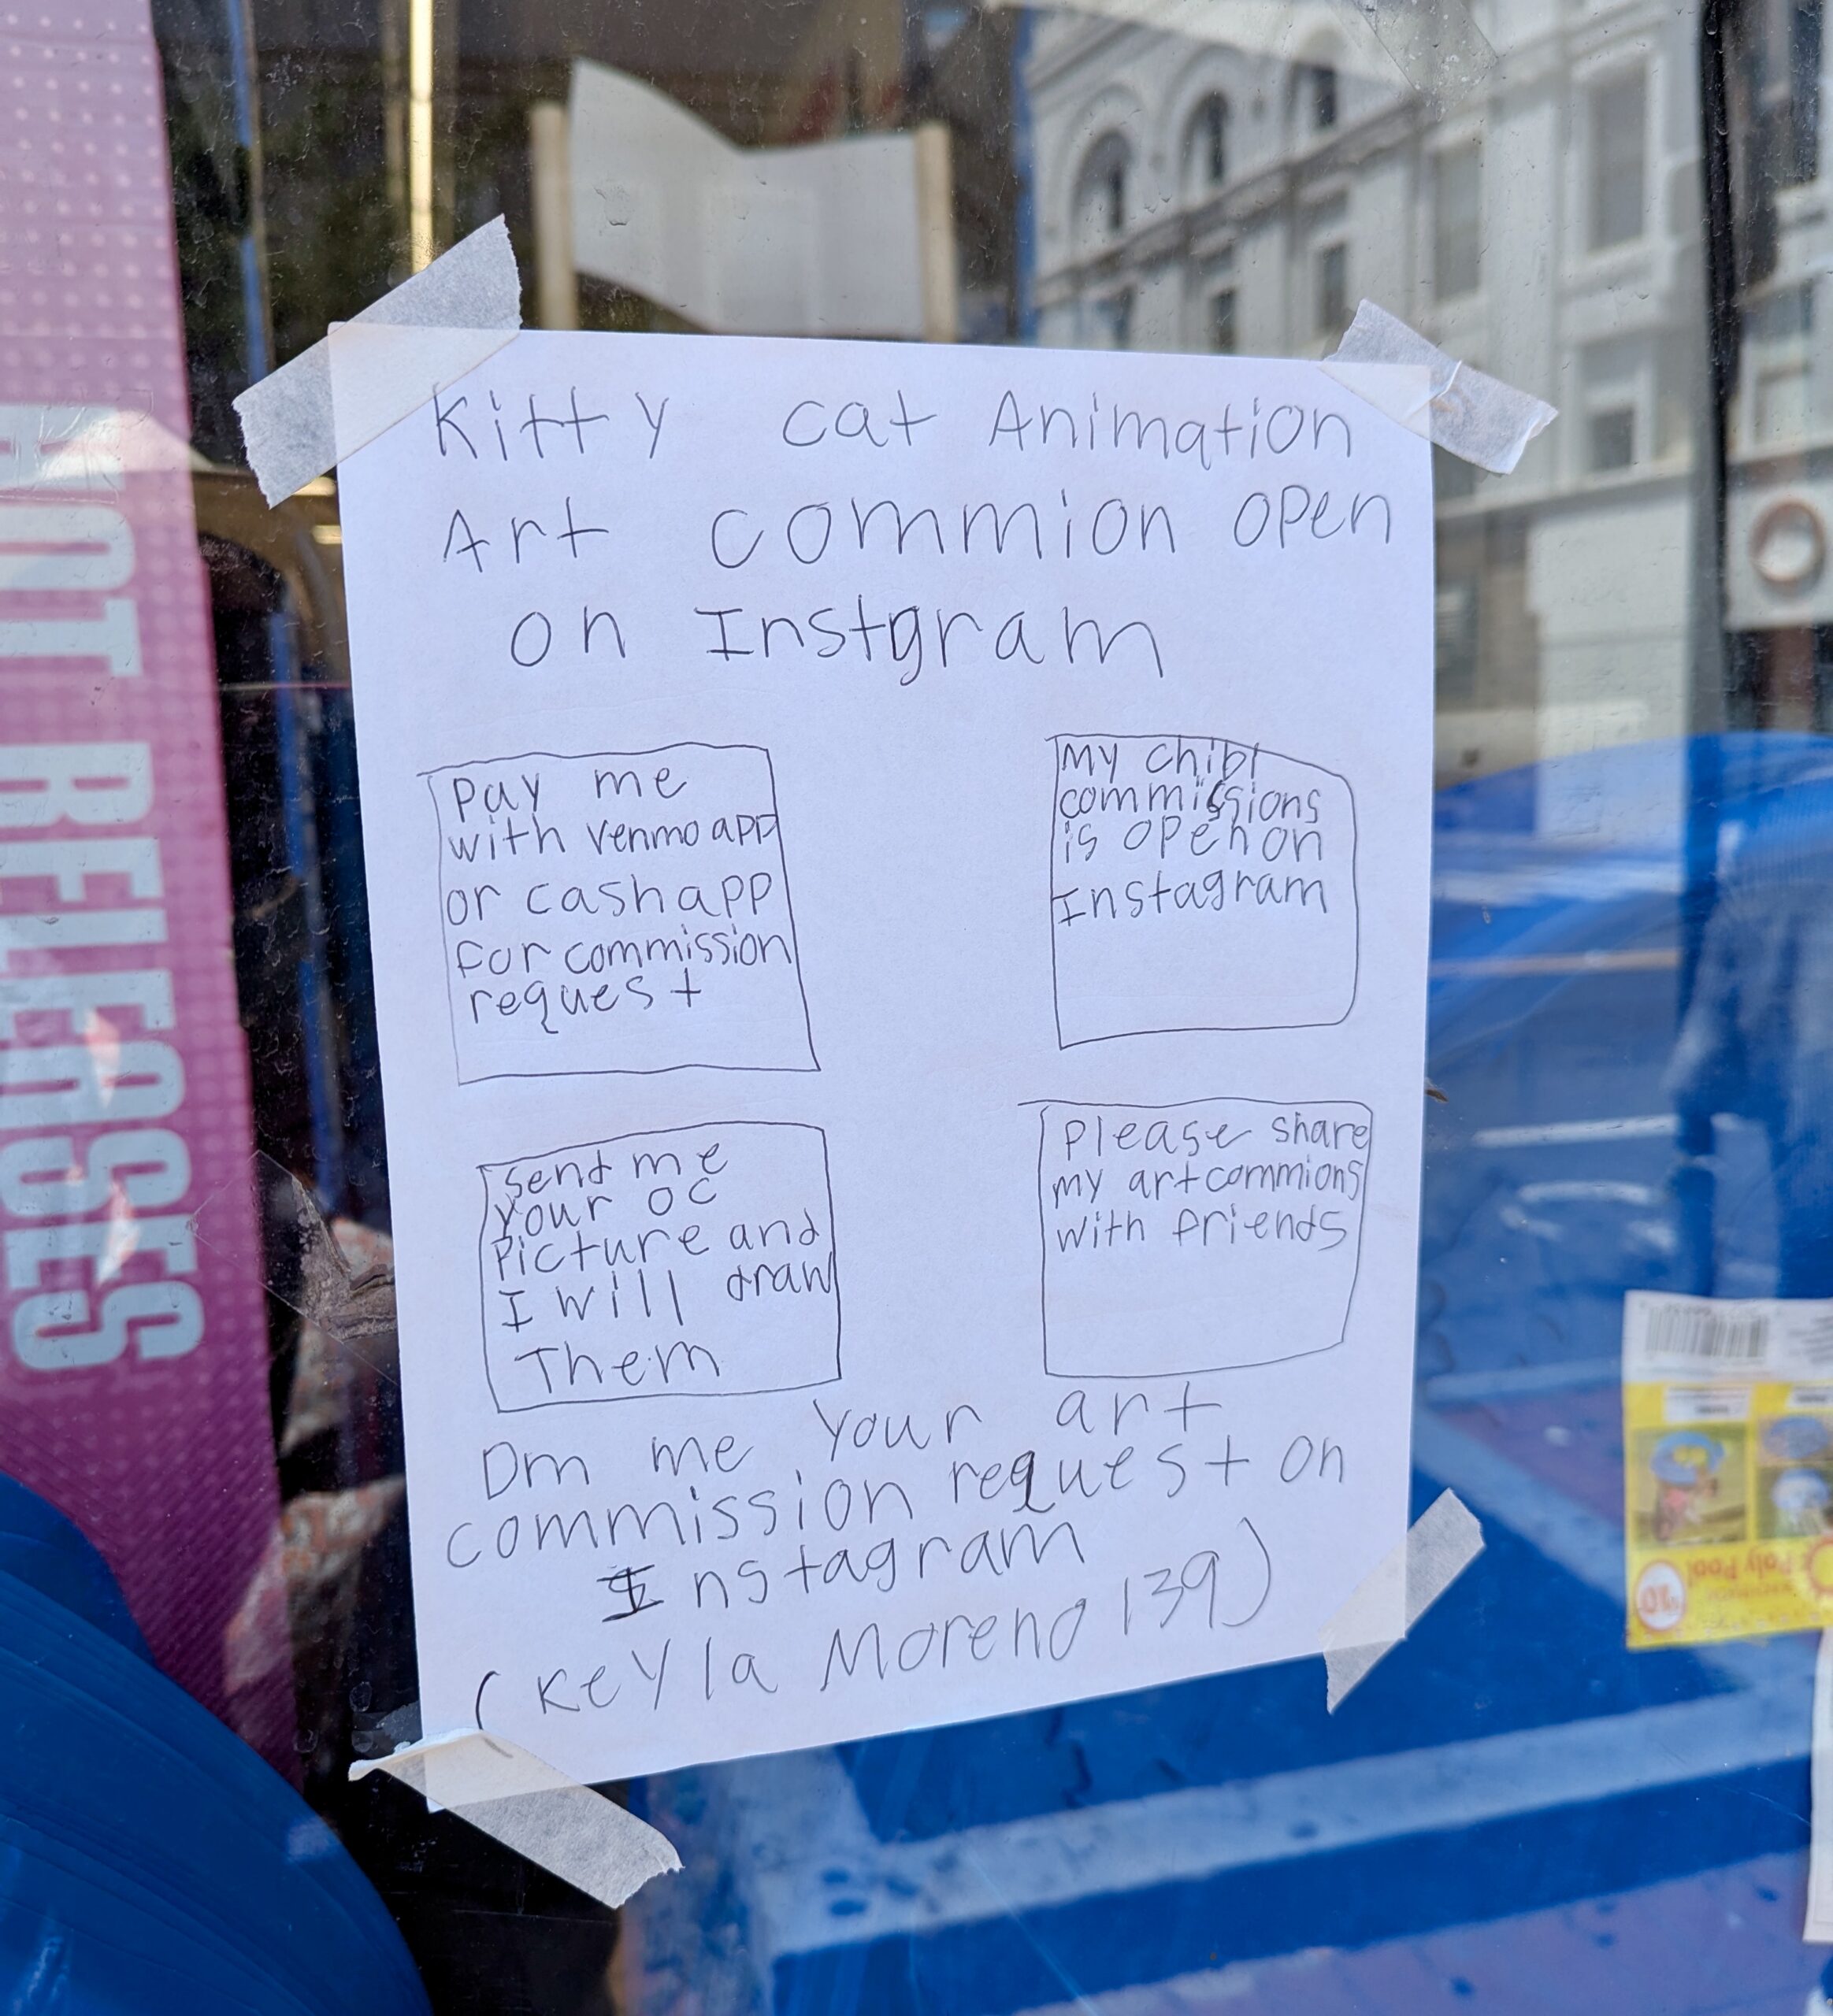 Kitty cat Animation
Art commion open
on Instgram
Pay me
with venmo app
or cash app
for commission
request
My chibi
commissions
is open on
Instagram
Send me
your oc
Picture and
I will draw
Them
Please share
my art commions
with friends
Dm me your art
commission request on
Instagram
(Keyla Moreno 139)
HOT RELEASES
Poly Pool